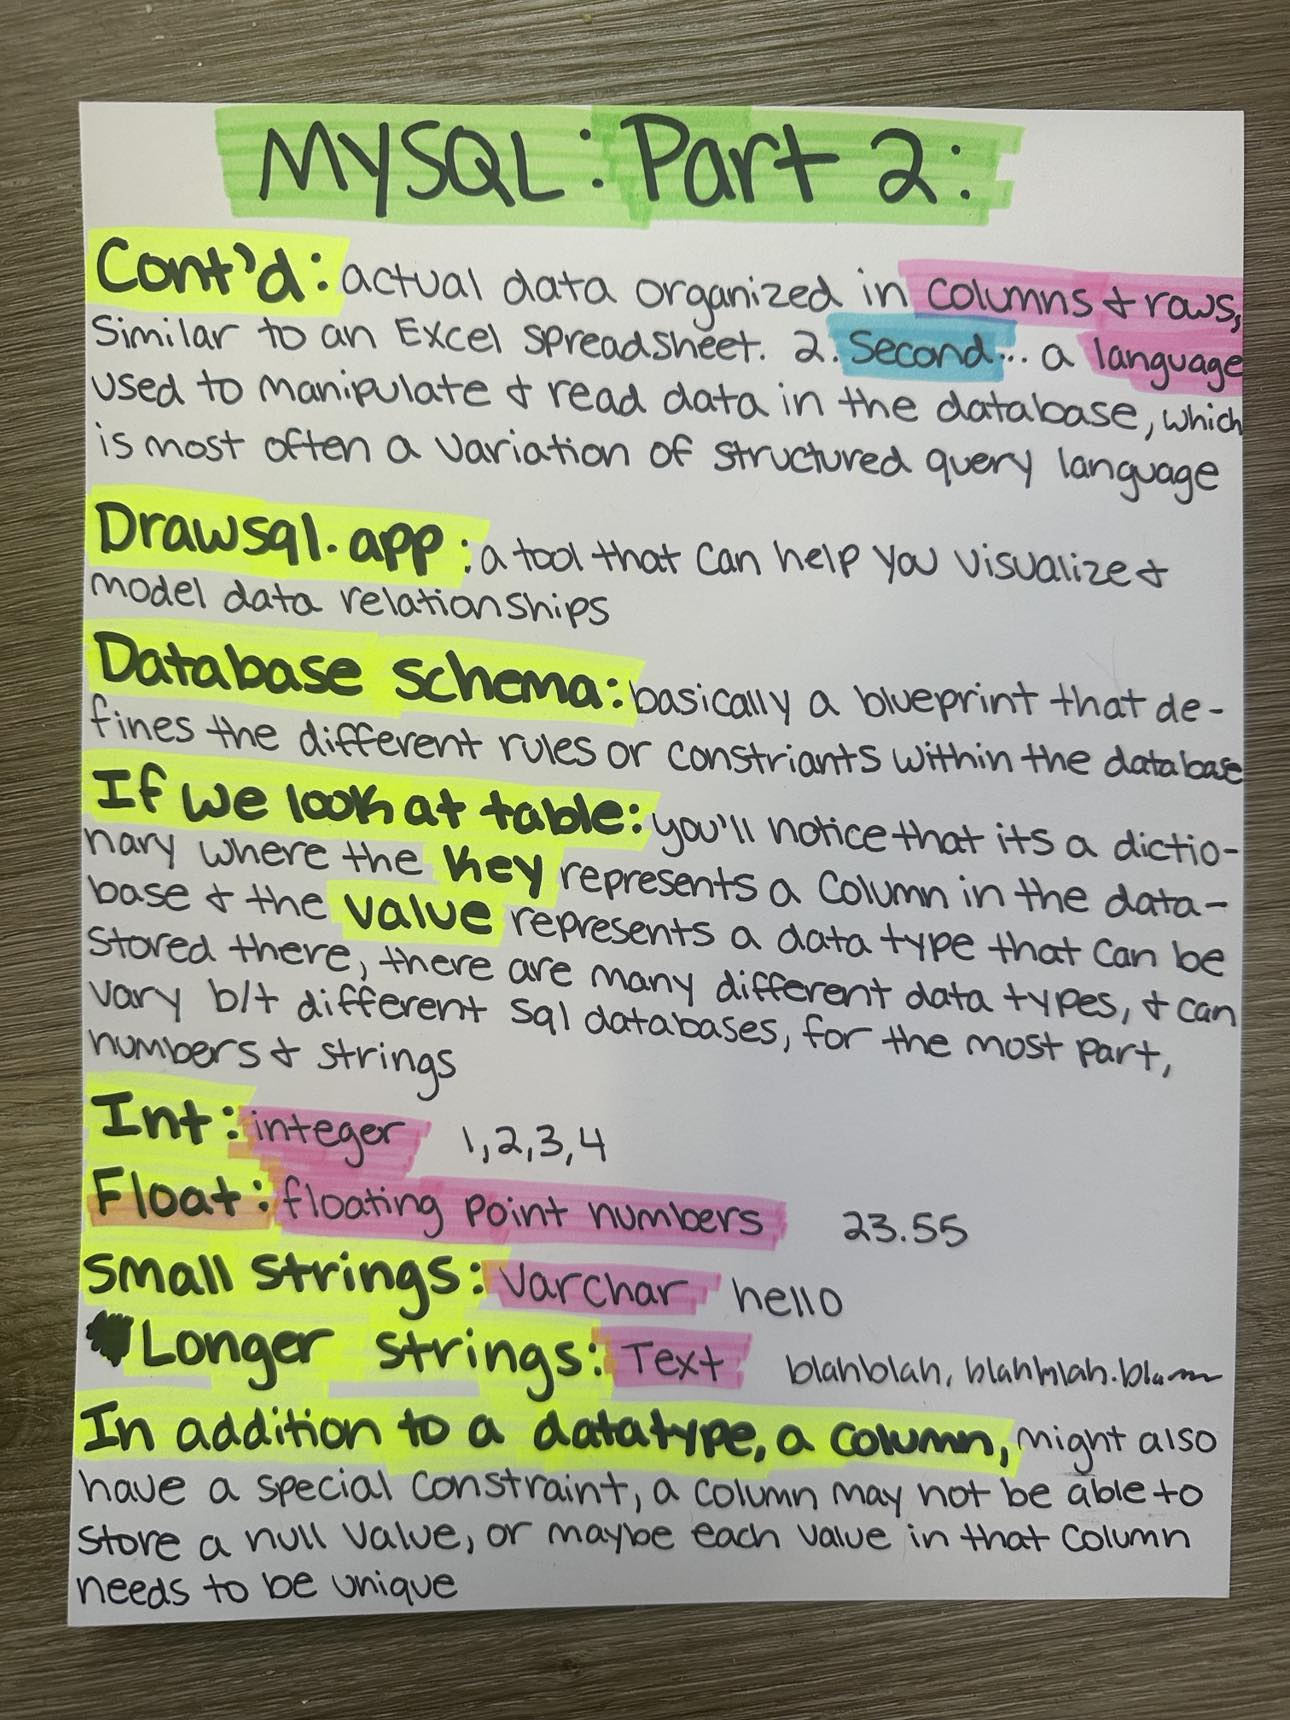 MYSQL: Part 2:
Cont'd: actual data organized in columns & rows,
similar to an Excel spreadsheet. 2. Second... a language
used to manipulate & read data in the database, which
is most often a variation of structured query language
Drawsql.app: a tool that can help you visualize &
model data relationships
Database schema: basically a blueprint that de-
fines the different rules or constriants within the database
If we look at table: you'll notice that its a dictio-
nary where the key represents a column in the data-
base & the value represents a data type that can be
stored there, there are many different data types, & can
vary b/t different sql databases, for the most part,
numbers & strings
Int: integer 1,2,3,4
Float: floating point numbers 23.55
Small strings: Varchar hello
Longer strings: Text blahblah, blahblah.
In addition to a datatype, a column, might also
have a special constraint, a column may not be able to
store a null value, or maybe each value in that column
needs to be unique